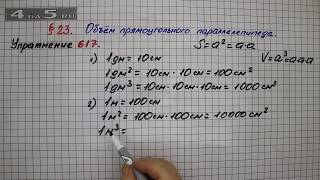 4 на 5.ru
§ 23. Объём прямоугольного параллелепипеда.
Упражнение 617. S=a²=a·a
V=a³=a·a·a
1) 1дм = 10см
1дм² = 10см · 10см = 100см²
1дм³ = 10см · 10см · 10см = 1000см³
2) 1м = 100см
1м² = 100см · 100см = 10000см²
1м³ =